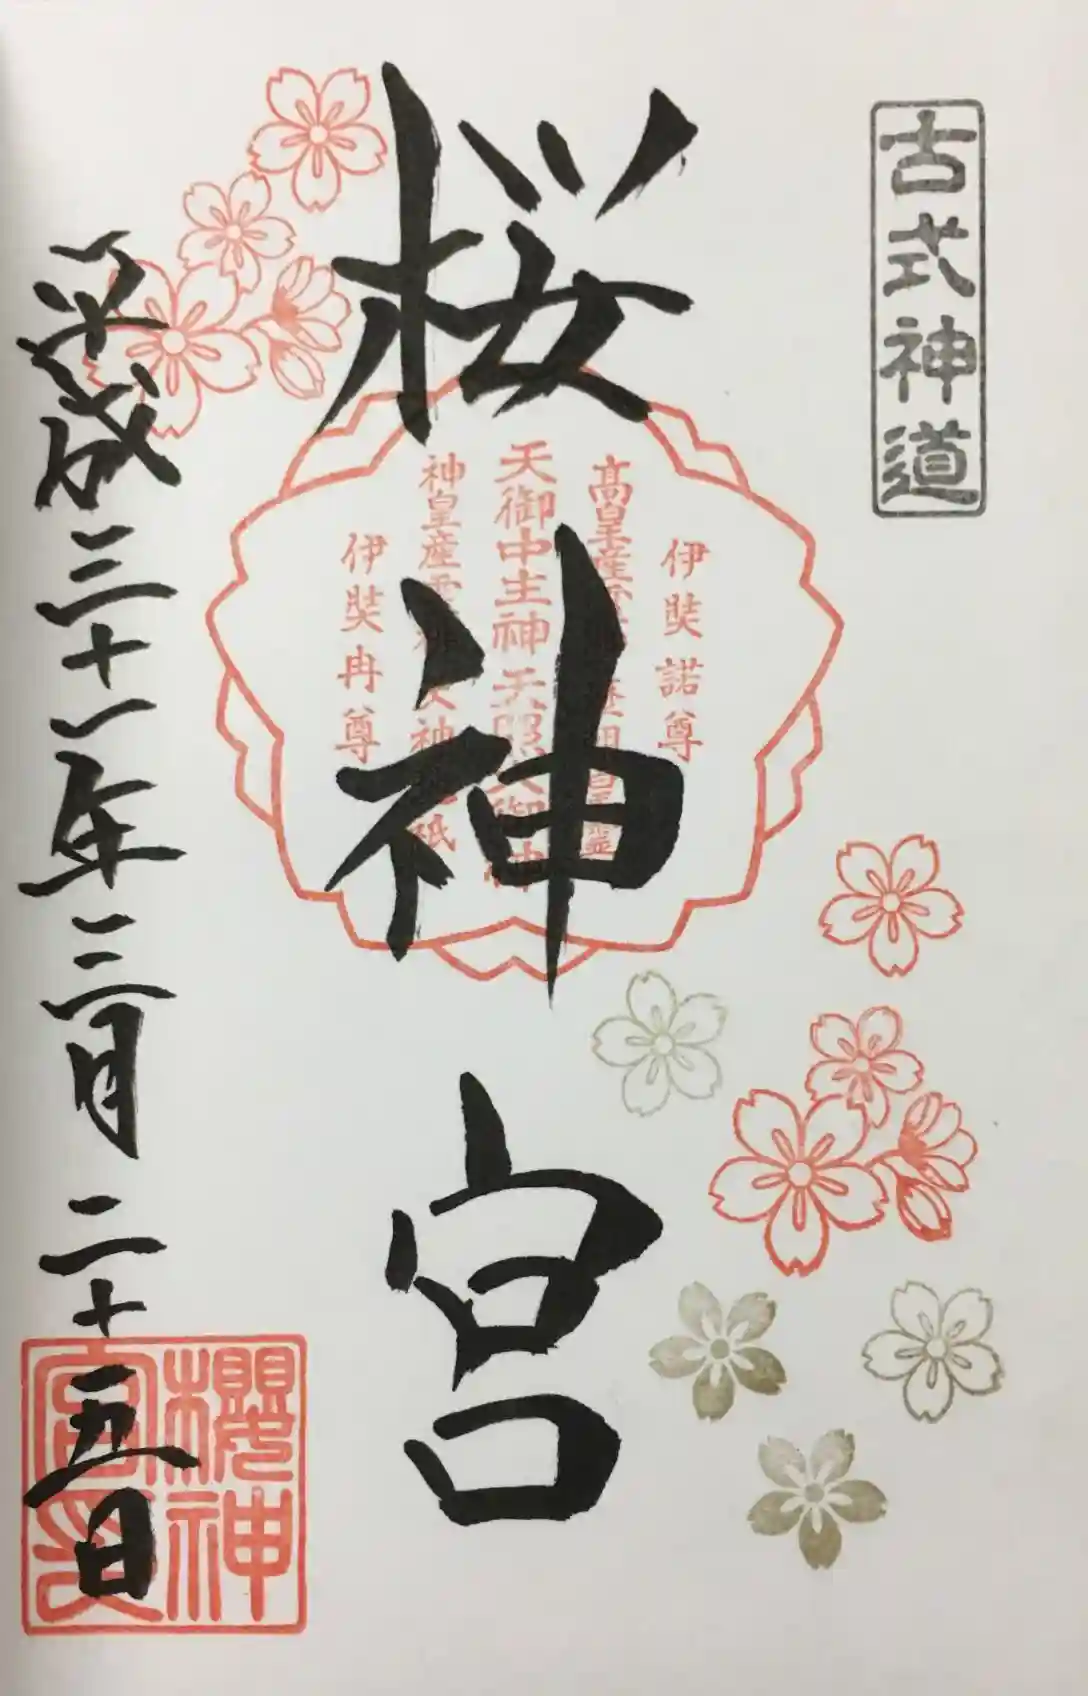 古式神道
桜神宮
伊弉諾尊
高皇産 歴 皇霊
天御中主神 天照大御神
神皇産 神 祇
伊弉冉尊
平成三十一年三月二十五日
櫻神
宮